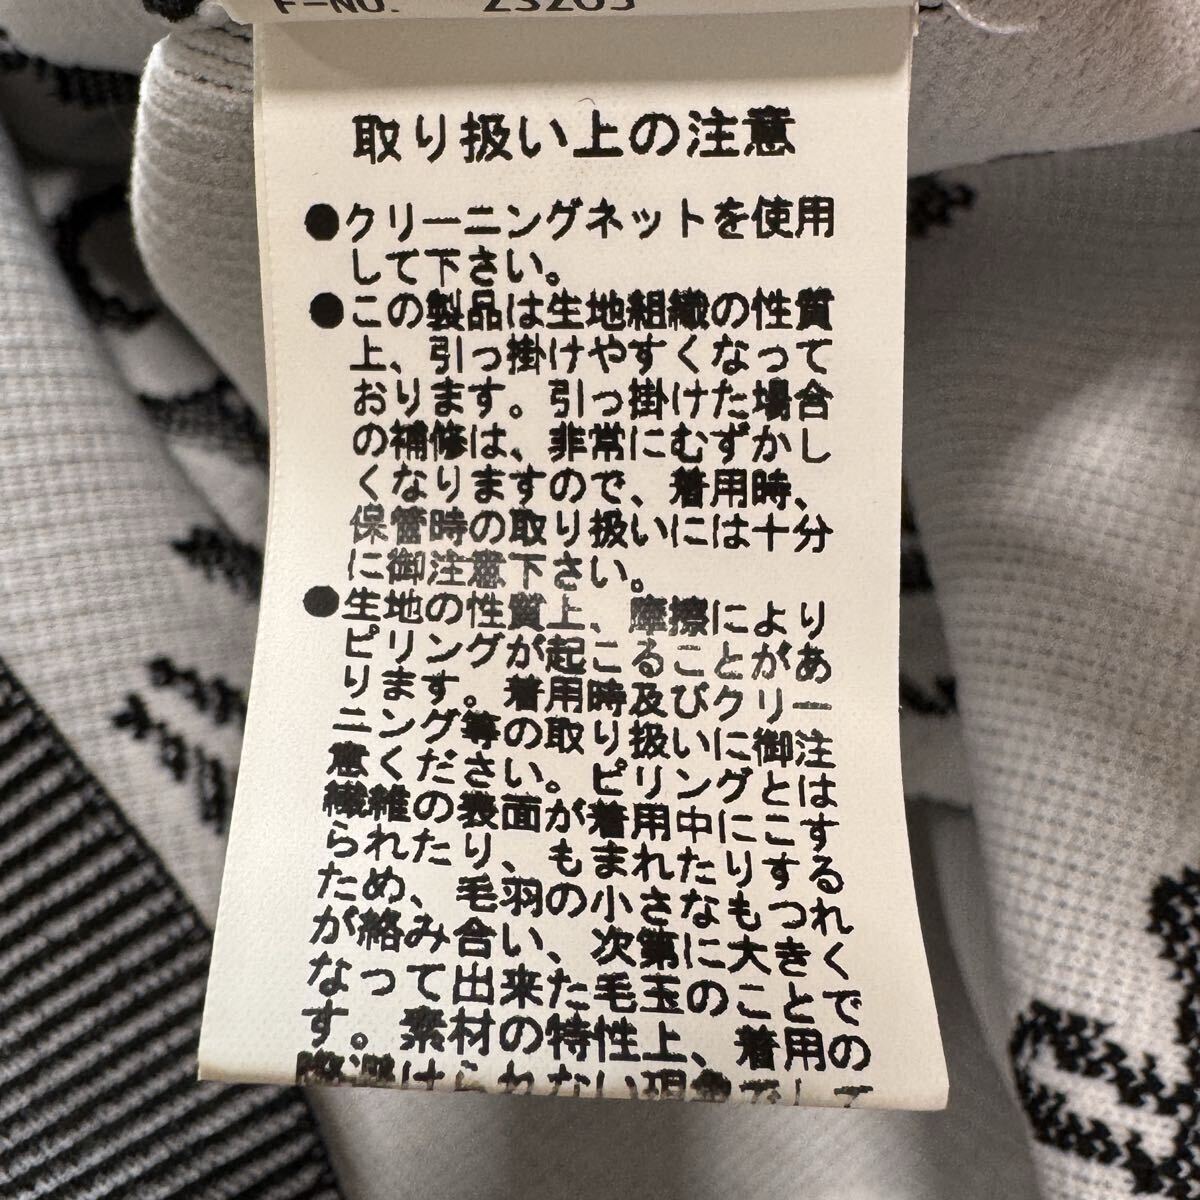 F-NO. 23203
取り扱い上の注意
●クリーニングネットを使用
して下さい。
●この製品は生地組織の性質
上、引っ掛けやすくなって
おります。引っ掛けた場合
の補修は、非常にむずかし
くなりますので、着用時、
保管時の取り扱いには十分
に御注意下さい。
●生地の性質上、摩擦により
ピリングが起こることがあ
ります。着用時及びクリー
ニング等の取り扱いに御注
意ください。ピリングとは
繊維の表面が着用中にこす
られたり、もまれたりする
ため、毛羽の小さなもつれ
が絡み合い、次第に大きく
なって出来た毛玉のことで
す。素材の特性上、着用の
際避けられない現象でして